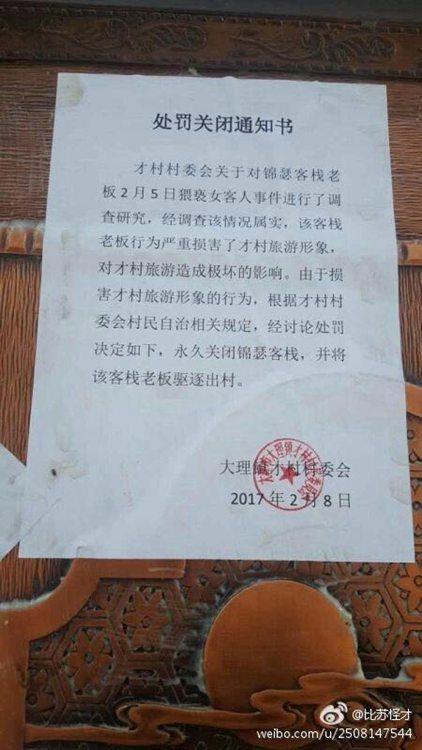 处罚关闭通知书
才村村委会关于对锦瑟客栈老
板2月5日猥亵女客人事件进行了调
查研究，经调查该情况属实，该客栈
老板行为严重损害了才村旅游形象，
对才村旅游造成极坏的影响。由于损
害才村旅游形象的行为，根据才村村
委会村民自治相关规定，经讨论处罚
决定如下，永久关闭锦瑟客栈，并将
该客栈老板驱逐出村。
大理镇才村村委会
2017年2月8日
@比苏怪才
weibo.com/u/2508147544